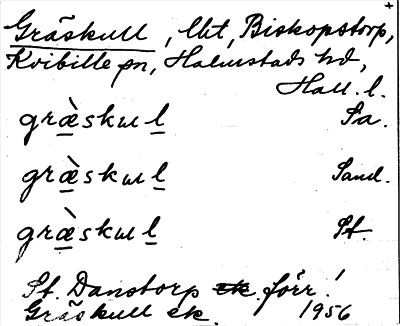 Gräskull, lht, Biskopstorp,
Kvibille sn, Halmstads hd,
Hall. l.
græ̀skɯl Sa.
græ̀skɯl Sand.
græ̀skɯl St.
St. Danstorp förr!
Gräskull ek. 1956